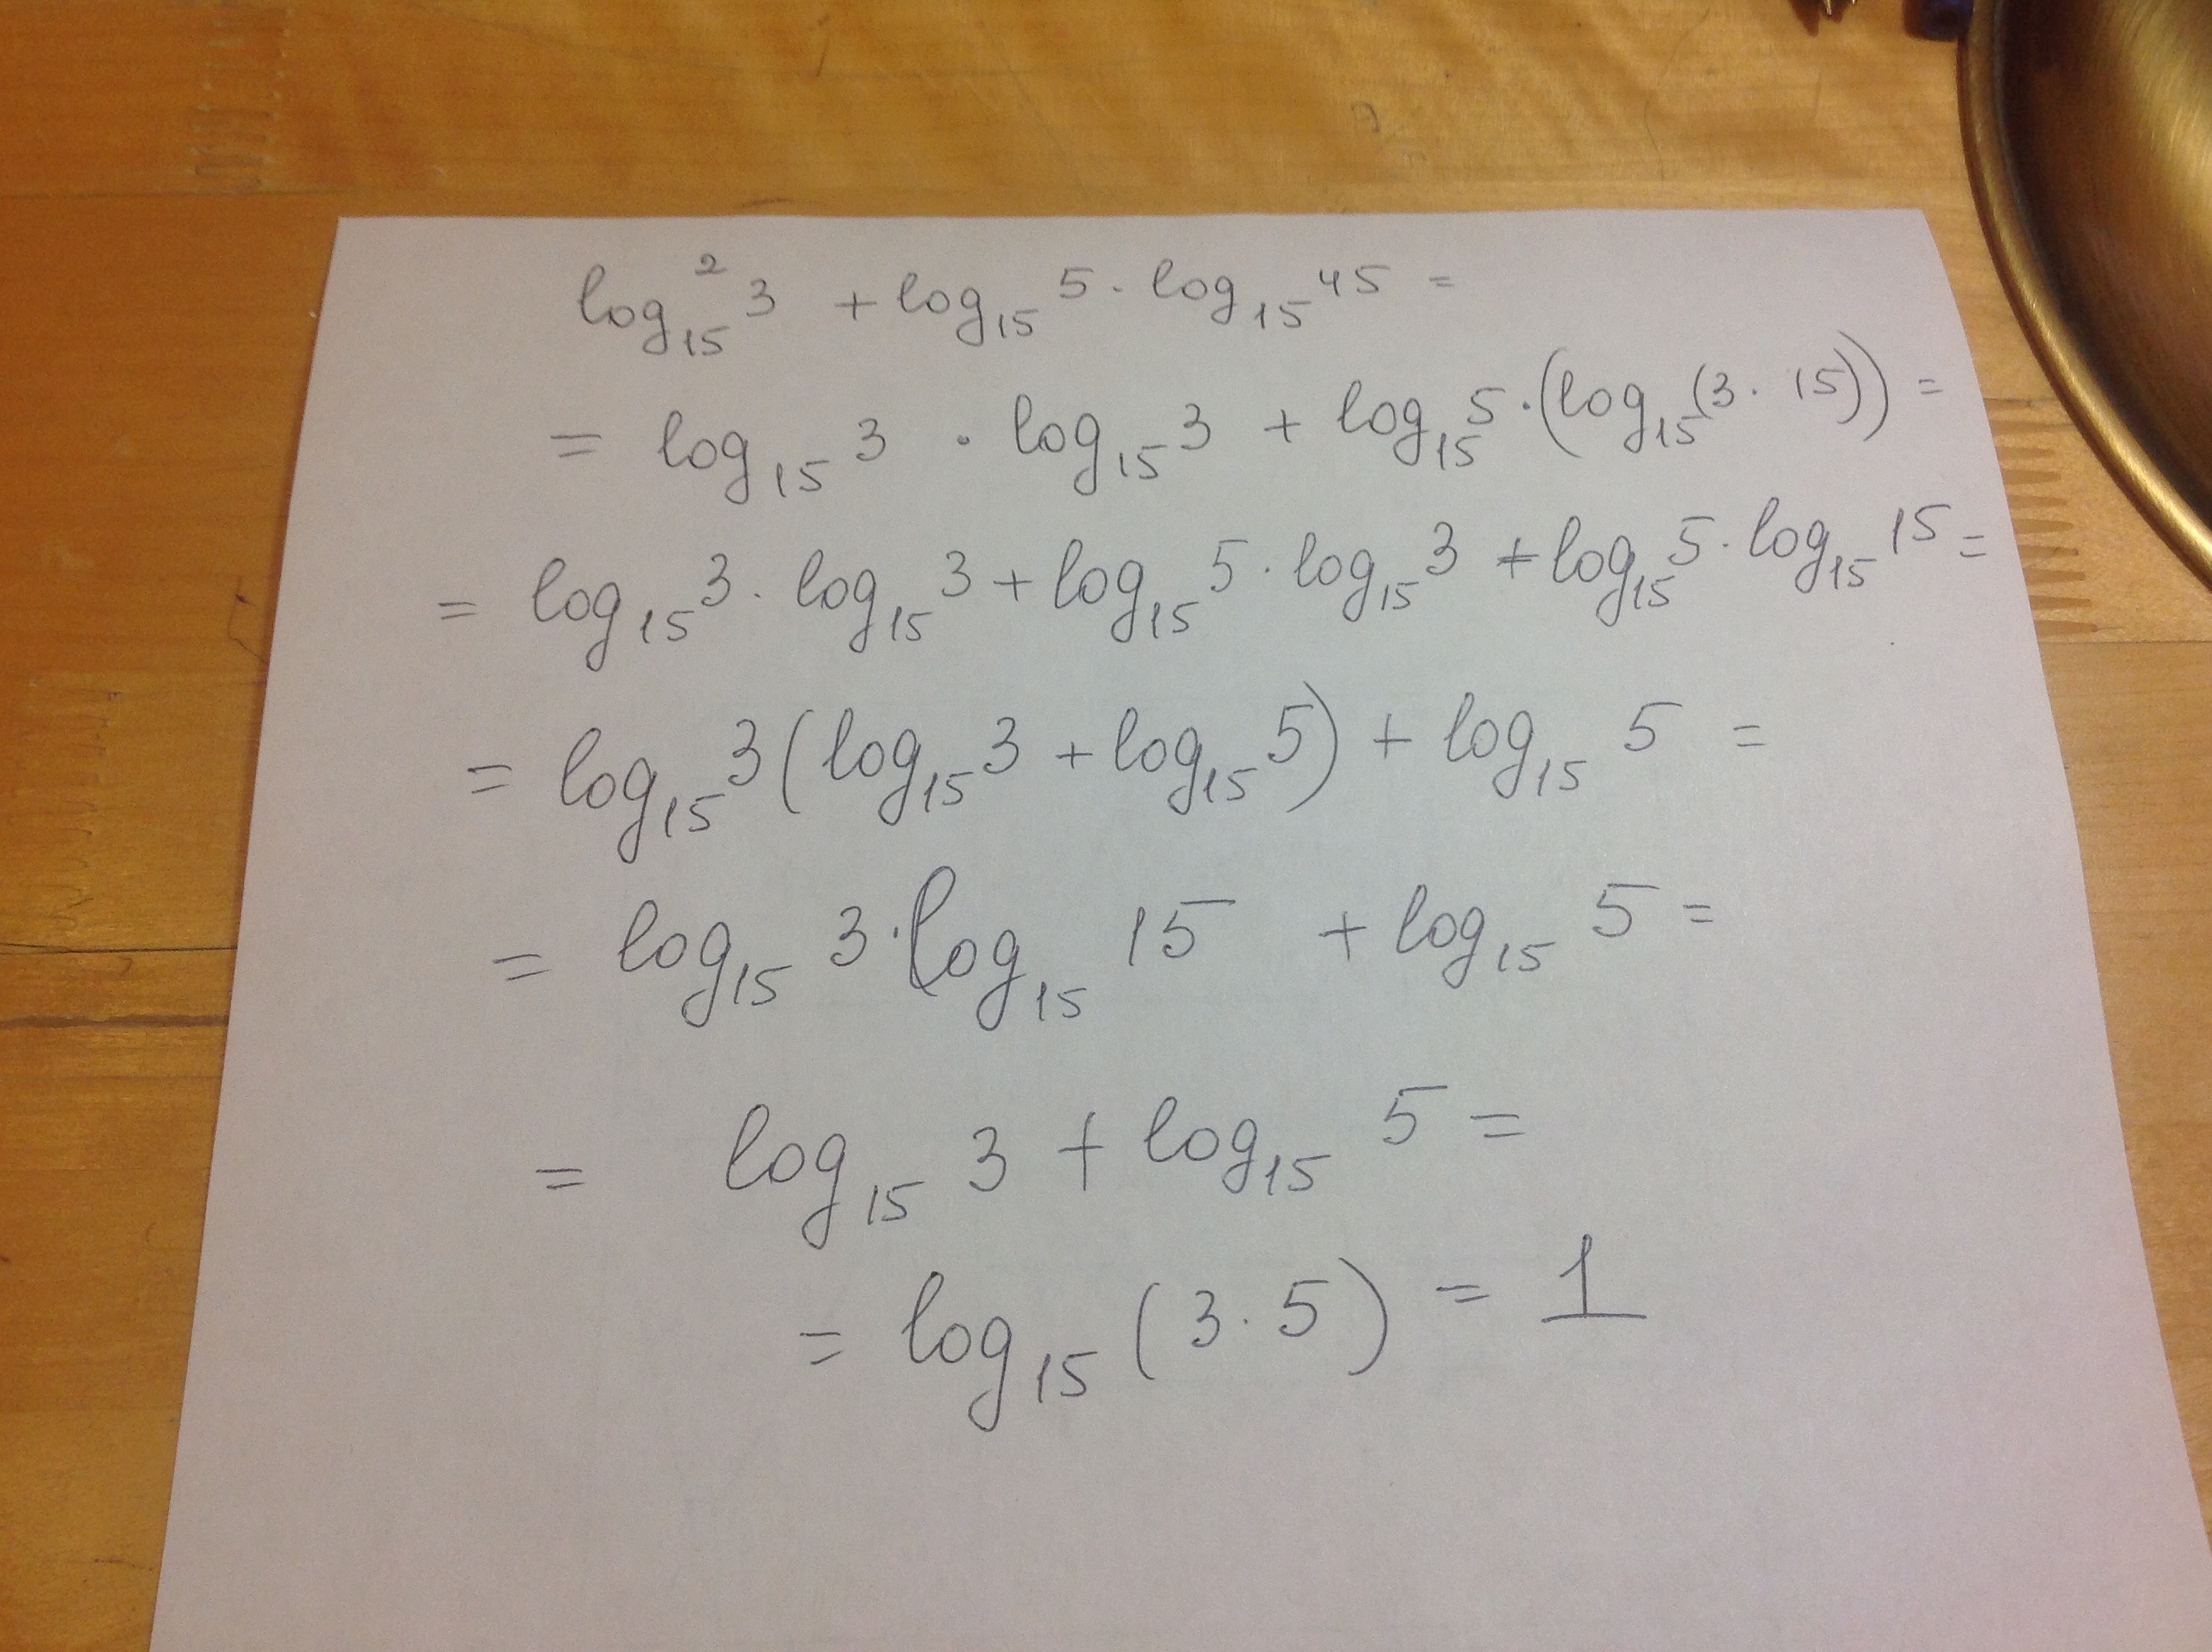 log₁₅² 3 + log₁₅ 5 · log₁₅ 45 =
= log₁₅ 3 · log₁₅ 3 + log₁₅ 5 · (log₁₅ (3 · 15)) =
= log₁₅ 3 · log₁₅ 3 + log₁₅ 5 · log₁₅ 3 + log₁₅ 5 · log₁₅ 15 =
= log₁₅ 3 (log₁₅ 3 + log₁₅ 5) + log₁₅ 5 =
= log₁₅ 3 · log₁₅ 15 + log₁₅ 5 =
= log₁₅ 3 + log₁₅ 5 =
= log₁₅ (3 · 5) = 1